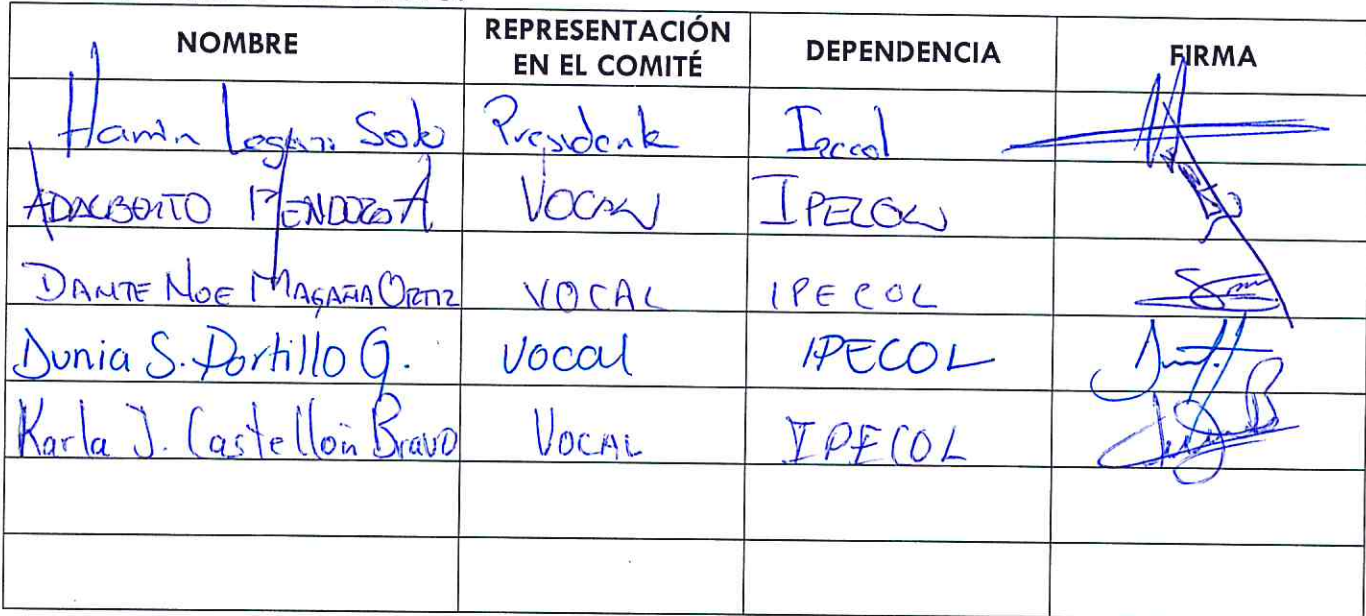 NOMBRE REPRESENTACIÓN EN EL COMITÉ DEPENDENCIA FIRMA
Soto Presidente Ipecol
ADALBERTO MENDOZA VOCAL IPECOL
DANTE NOE MAGAÑA ORTIZ VOCAL IPECOL
Dunia S. Portillo G. Vocal IPECOL
Karla J. Castellón Bravo VOCAL IPECOL